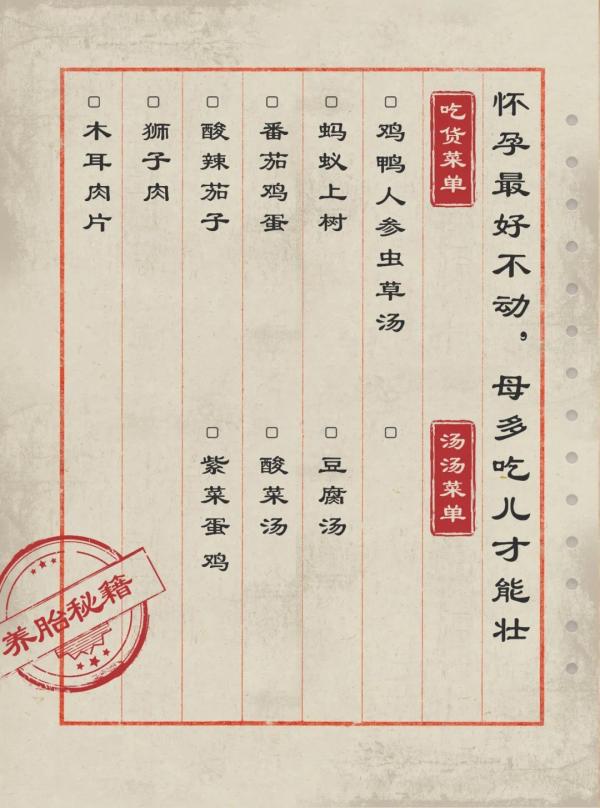 怀孕最好不动，母多吃儿才能壮
吃货菜单
鸡鸭人参虫草汤
蚂蚁上树
番茄鸡蛋
酸辣茄子
狮子肉
木耳肉片
汤汤菜单
豆腐汤
酸菜汤
紫菜蛋鸡
养胎秘籍